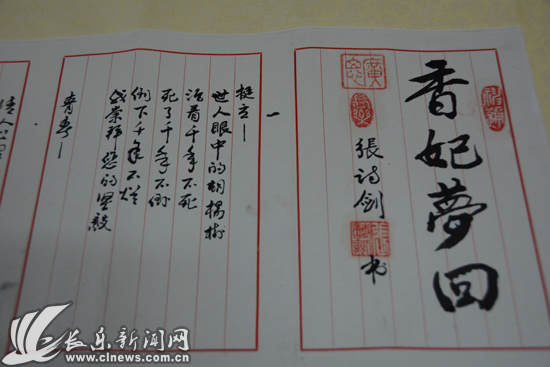 香妃夢回
張詩剑
书
一
挺立—
世人眼中的胡楊樹
活着千年不死
死了千年不倒
倒下千年不烂
我崇拜您的坚毅
青春—
长乐新闻网
www.clnews.com.cn